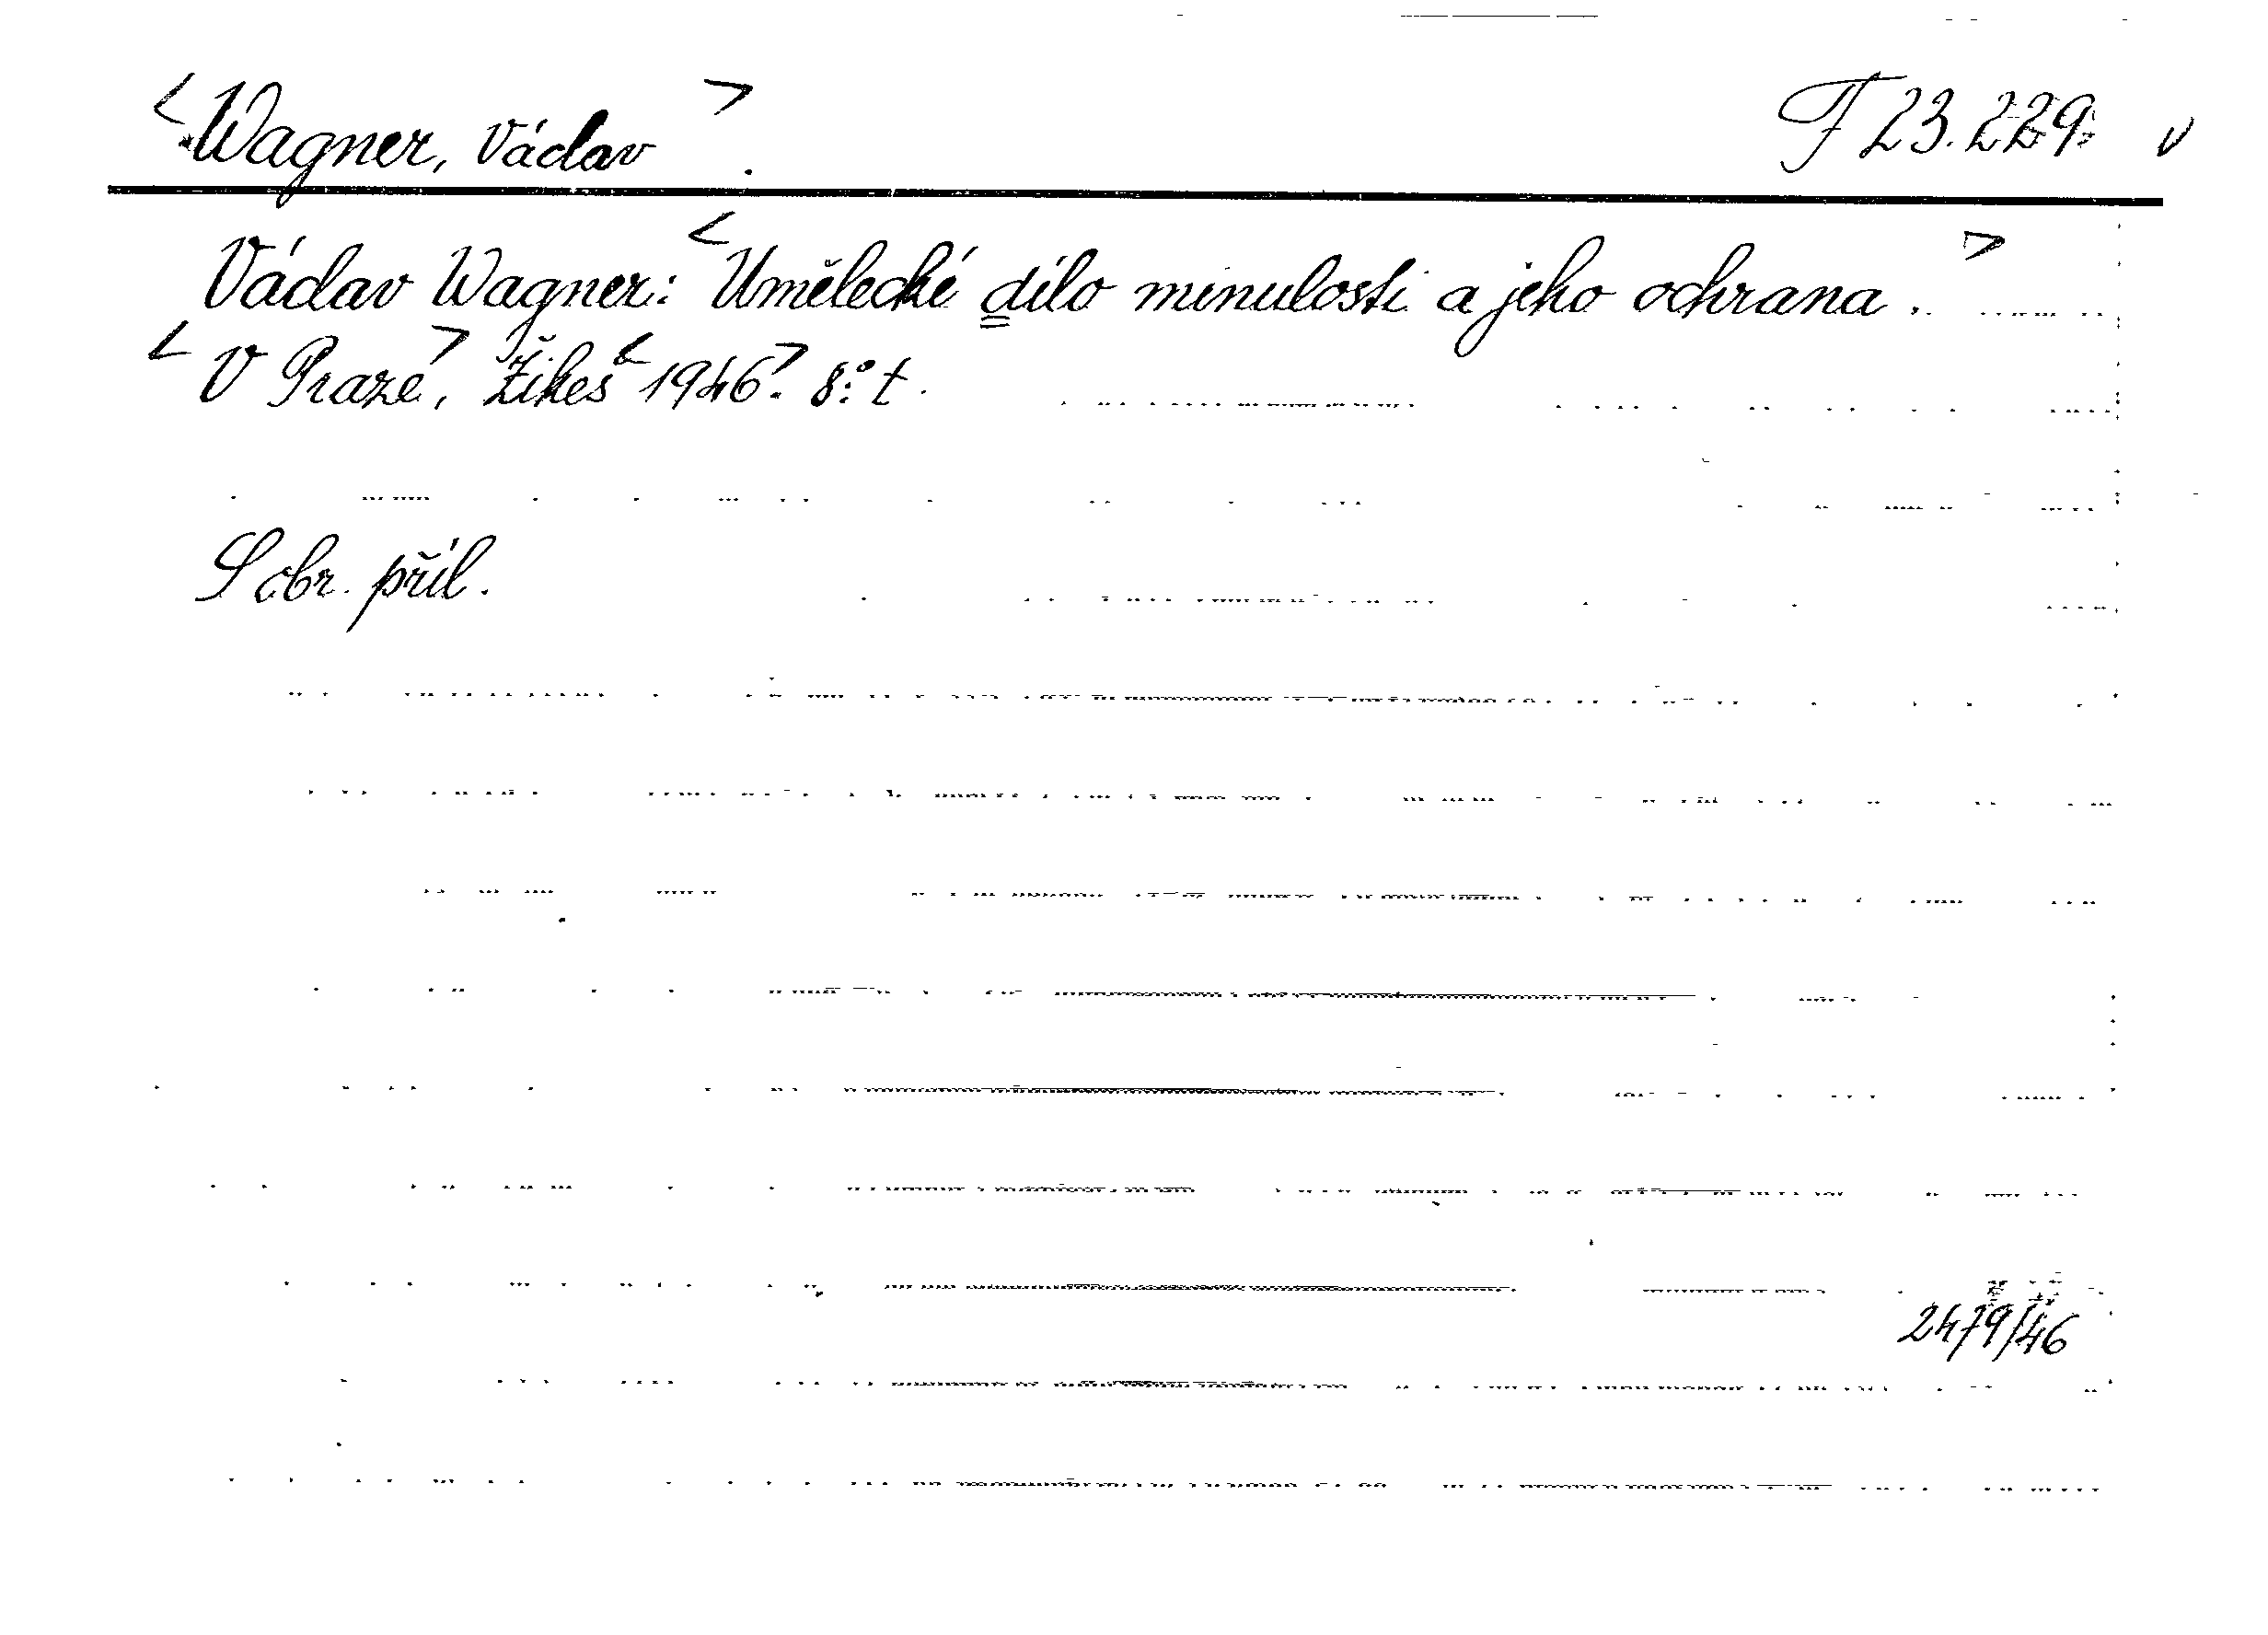 <Wagner, Václav>. F 23.229 v
Václav Wagner: <Umělecké dílo minulosti a jeho ochrana.>
<V Praze>, Žikeš <1946>. 8.° t.
S obr. příl.
2479/46